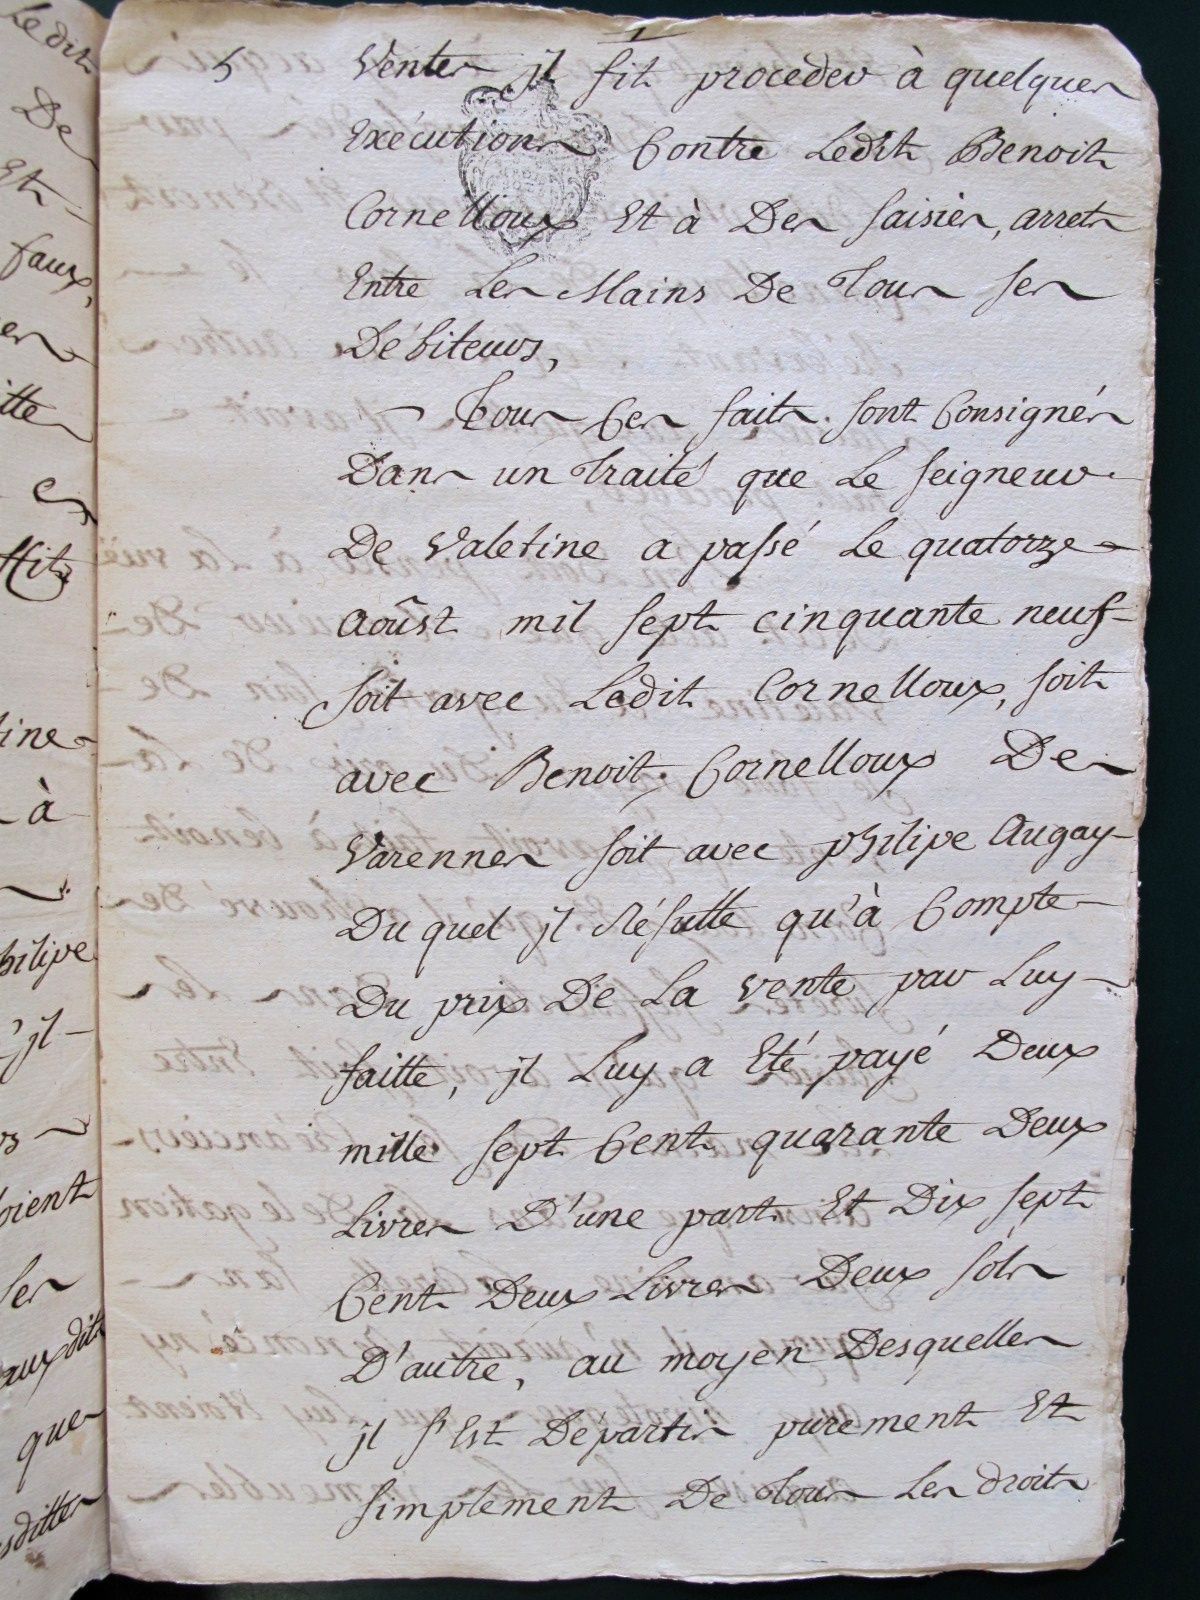 5
Ventes jl fit proceder à quelques
Exécutions Contre Ledit Benoit
Cornelloux Et à Des saisies, arrets
Entre Les Mains De Tous ses
Débiteurs,
Tous Ces faits sont Consignés
Dans un Traité que Le seigneur
De Valetine a passé Le quatorze
Aoûst mil sept cinquante neuf
soit avec Ledit Cornelloux, soit
avec Benoit Cornelloux De
Varennes soit avec philipe Augay
Du quel jl Résulte qu'à Compte
Du prix De La vente par Luy
faitte, jl Luy a Eté payé Deux
mille sept Cent quarante Deux
Livres D'une part Et Dix sept
Cent Deux Livres Deux sols
D'autre, au moyen Desquelles
jl s'Est Départis purement Et
simplement De Tous Les droits
Ledit
De
Et
faux,
itte
tine
à
philipe
'jl
oient
ses
auxdits
que
sdittes